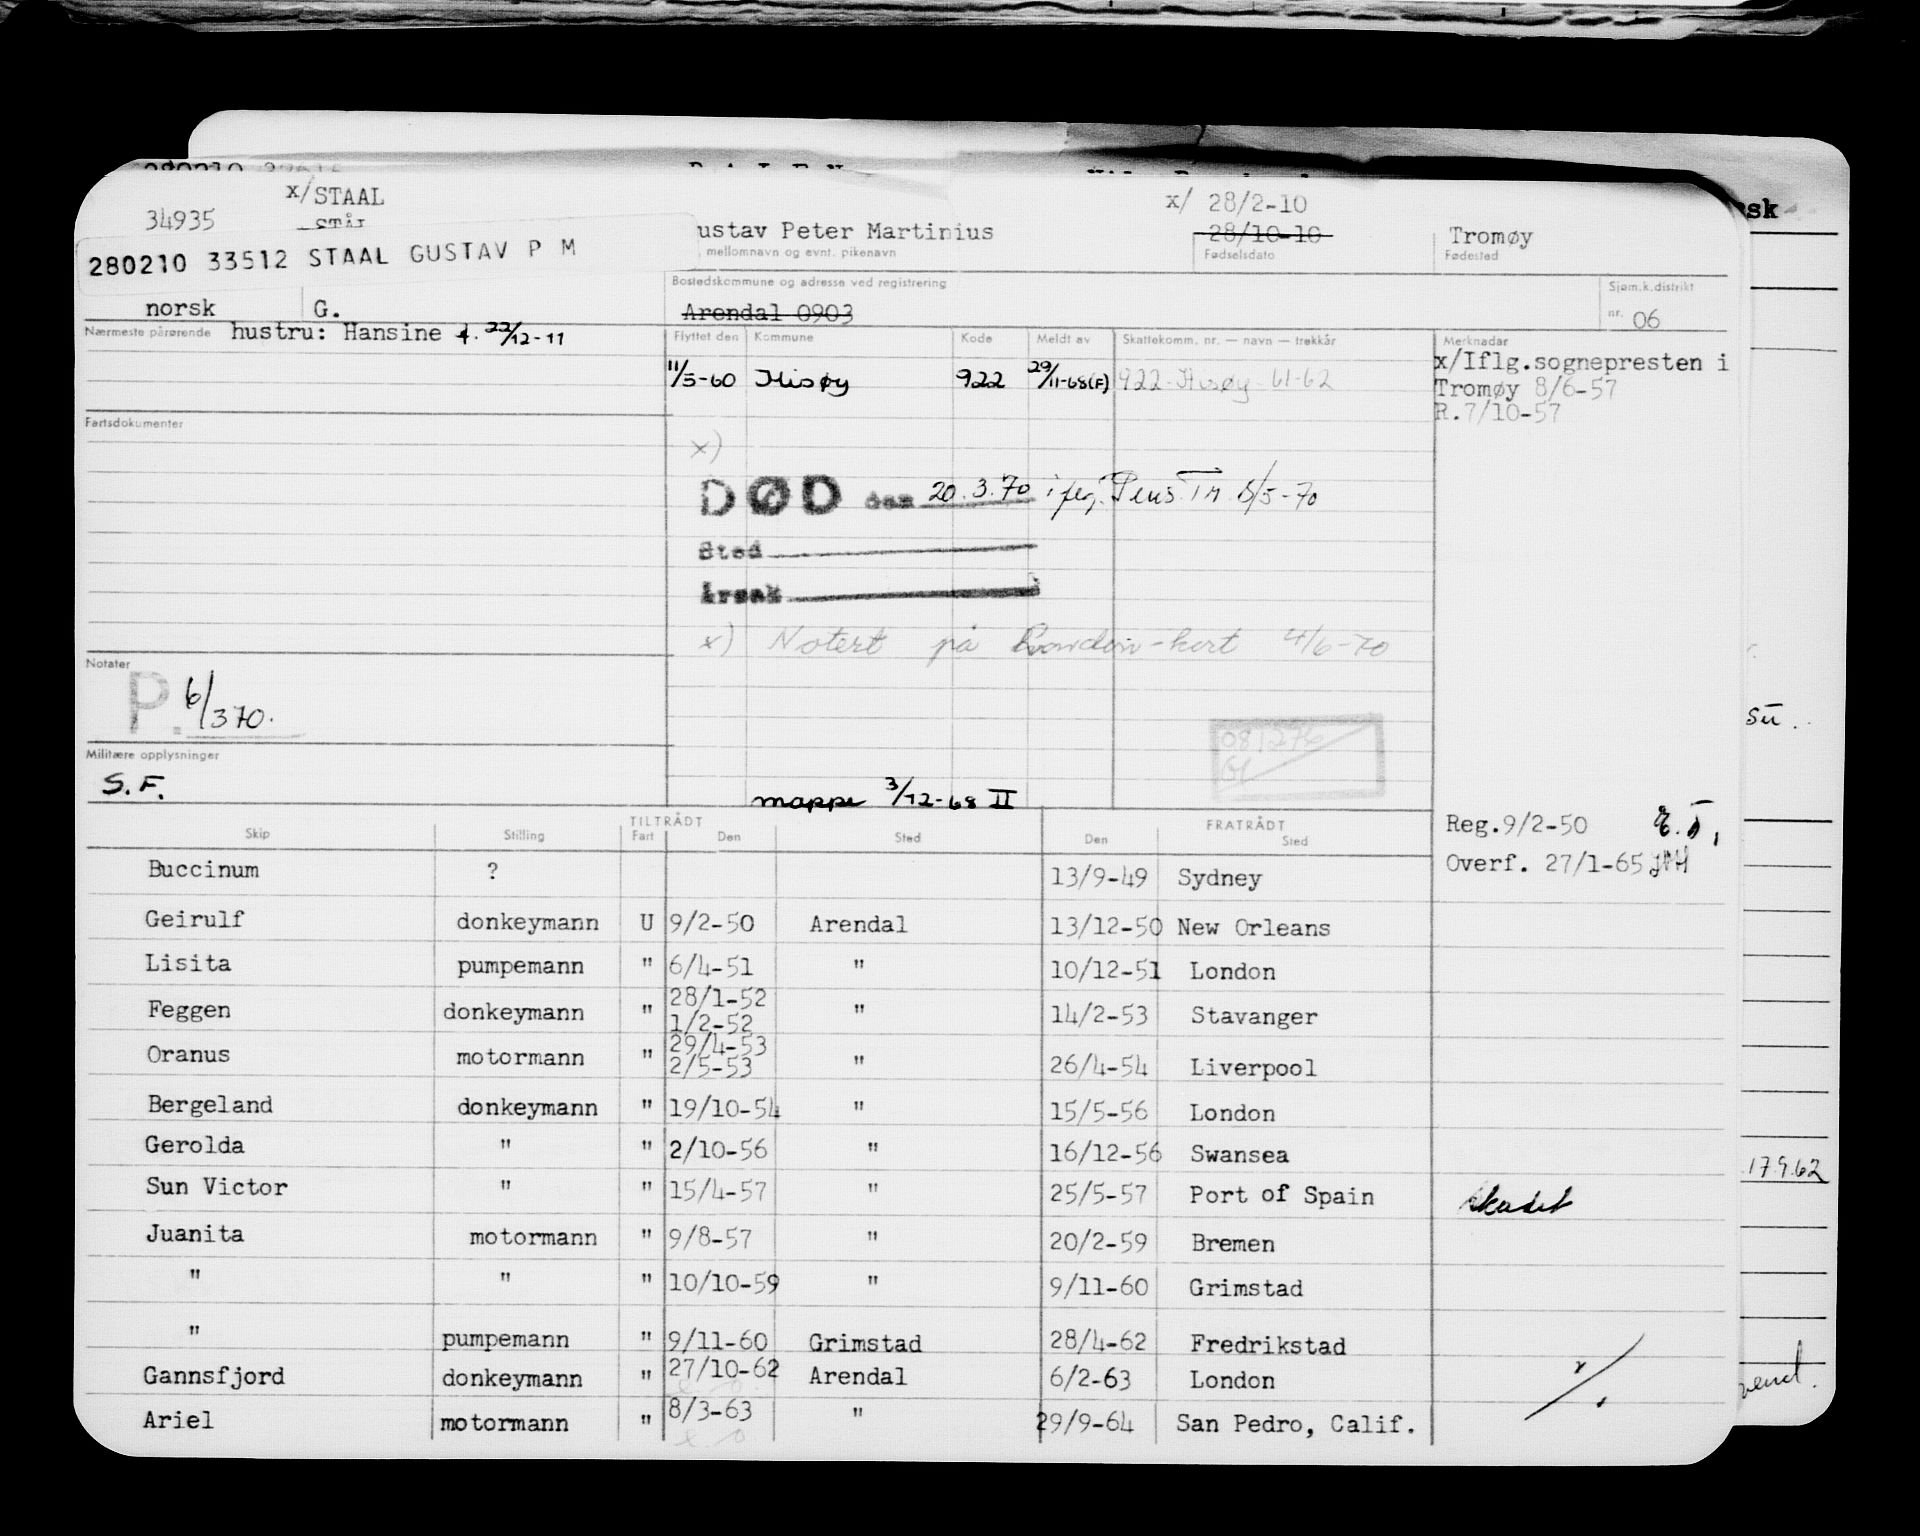 x/STAAL
34935
280210 33512 STAAL GUSTAV P M
ustav Peter Martinius
mellomnavn og evnt. pikenavn
x/ 28/2-10
28/10-10
Fødselsdato
Tromøy
Fødested
norsk G.
Bostedskommune og adresse ved registrering
Arendal 0903
Sjøm.k.distrikt
nr. 06
Nærmeste pårørende hustru: Hansine f. 22/12-11
Flyttet den Kommune Kode Meldt av Skattekomm. nr. — navn — trekkår Merknader
11/5-60 Hisøy 922 29/11-68(F) 922-Hisøy-61-62
x/Iflg.sognepresten i
Tromøy 8/6-57
R.7/10-57
Fartsdokumenter
x)
DØD den 20.3.70 iflg. Pens.Tr. 8/5-70
Sted
Årsak
x) Notert på -kort 4/6-70
Notater
P. 6/370.
Militære opplysninger
S.F.
mappe 3/12-68 II
Reg.9/2-50
Overf. 27/1-65
TILTRÅDT FRATRÅDT
Skip Stilling Fart Den Sted Den Sted
Buccinum ? 13/9-49 Sydney
Geirulf donkeymann U 9/2-50 Arendal 13/12-50 New Orleans
Lisita pumpemann " 6/4-51 " 10/12-51 London
Feggen donkeymann " 28/1-52 1/2-52 " 14/2-53 Stavanger
Oranus motormann " 29/4-53 2/5-53 " 26/4-54 Liverpool
Bergeland donkeymann " 19/10-54 " 15/5-56 London
Gerolda " " 2/10-56 " 16/12-56 Swansea
Sun Victor " " 15/4-57 " 25/5-57 Port of Spain skadet
Juanita motormann " 9/8-57 " 20/2-59 Bremen
" " " 10/10-59 " 9/11-60 Grimstad
" pumpemann " 9/11-60 Grimstad 28/4-62 Fredrikstad
Gannsfjord donkeymann " 27/10-62 Arendal 6/2-63 London
Ariel motormann " 8/3-63 " 29/9-64 San Pedro, Calif.
17.9.62
vend.